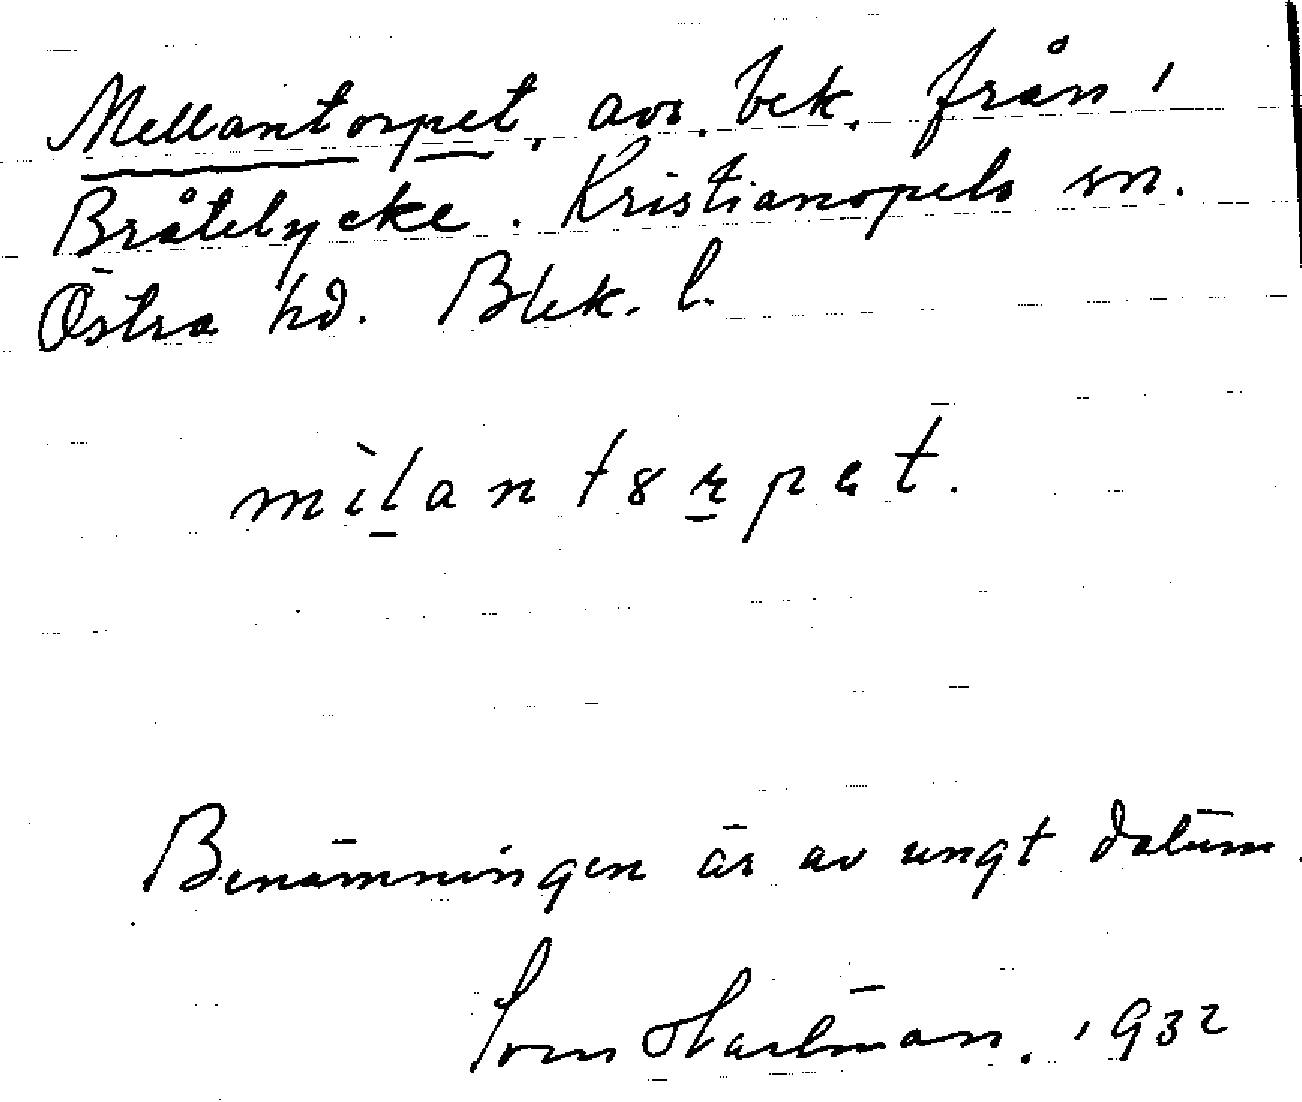 Mellantorpet, avs. bek. från
Bråtelycke. Kristianopels sn.
Östra hd. Blek. l.
mìlantɤrpət.
Benämningen är av ungt datum.
Sven Hartman. 1932